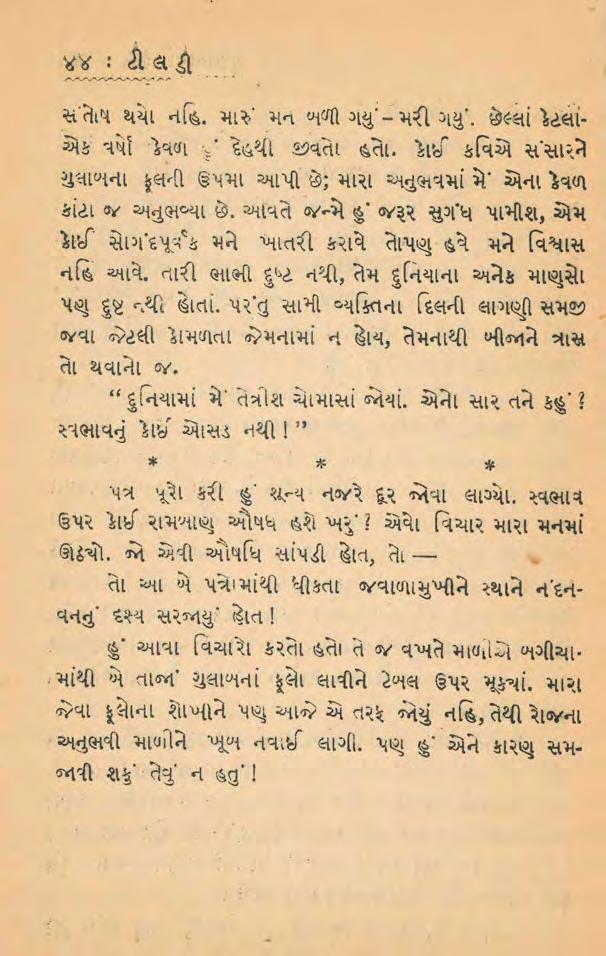 ૪૪ : ટીલડી
સંતોષ થયો નહિ. મારું મન બળી ગયું – મરી ગયું. છેલ્લાં કેટલાં-
એક વર્ષો કેવળ હું દેહથી જીવતો હતો. કોઈ કવિએ સંસારને
ગુલાબના ફૂલની ઉપમા આપી છે; મારા અનુભવમાં મેં એના કેવળ
કાંટા જ અનુભવ્યા છે. આવતે જન્મે હું જરૂર સુગંધ પામીશ, એમ
કોઈ સોગંદપૂર્વક મને ખાતરી કરાવે તોપણ હવે મને વિશ્વાસ
નહિ આવે. તારી ભાભી દુષ્ટ નથી, તેમ દુનિયાના અનેક માણસો
પણ દુષ્ટ નથી હોતાં. પરંતુ સામી વ્યક્તિના દિલની લાગણી સમજી
જવા જેટલી કોમળતા જેમનામાં ન હોય, તેમનાથી બીજાને ત્રાસ
તો થવાનો જ.
“ દુનિયામાં મેં તેત્રીશ ચોમાસાં જોયાં. એનો સાર તને કહું ?
સ્વભાવનું કોઈ ઓસડ નથી ! ”
* * *
પત્ર પૂરો કરી હું શૂન્ય નજરે દૂર જોવા લાગ્યો. સ્વભાવ
ઉપર કોઈ રામબાણ ઔષધ હશે ખરું ? એવો વિચાર મારા મનમાં
ઊઠ્યો. જો એવી ઔષધિ સાંપડી હોત, તો —
તો આ બે પત્રોમાંથી ધીકતા જવાળામુખીને સ્થાને નંદન-
વનનું દશ્ય સરજાયું હોત !
હું આવા વિચારો કરતો હતો તે જ વખતે માળીએ બગીચા-
માંથી બે તાજાં ગુલાબનાં ફૂલો લાવીને ટેબલ ઉપર મૂક્યાં. મારા
જેવા ફૂલોના શોખીને પણ આજે એ તરફ જોયું નહિ, તેથી રોજના
અનુભવી માળીને ખૂબ નવાઈ લાગી. પણ હું એને કારણ સમ-
જાવી શકું તેવું ન હતું !